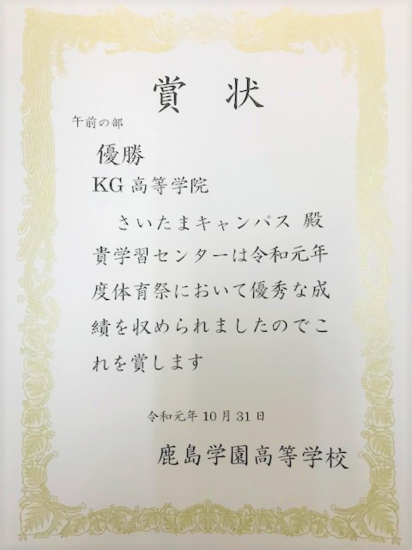 賞状
午前の部
優勝
KG高等学院
さいたまキャンパス 殿
貴学習センターは令和元年
度体育祭において優秀な成
績を収められましたのでこ
れを賞します
令和元年10月31日
鹿島学園高等学校